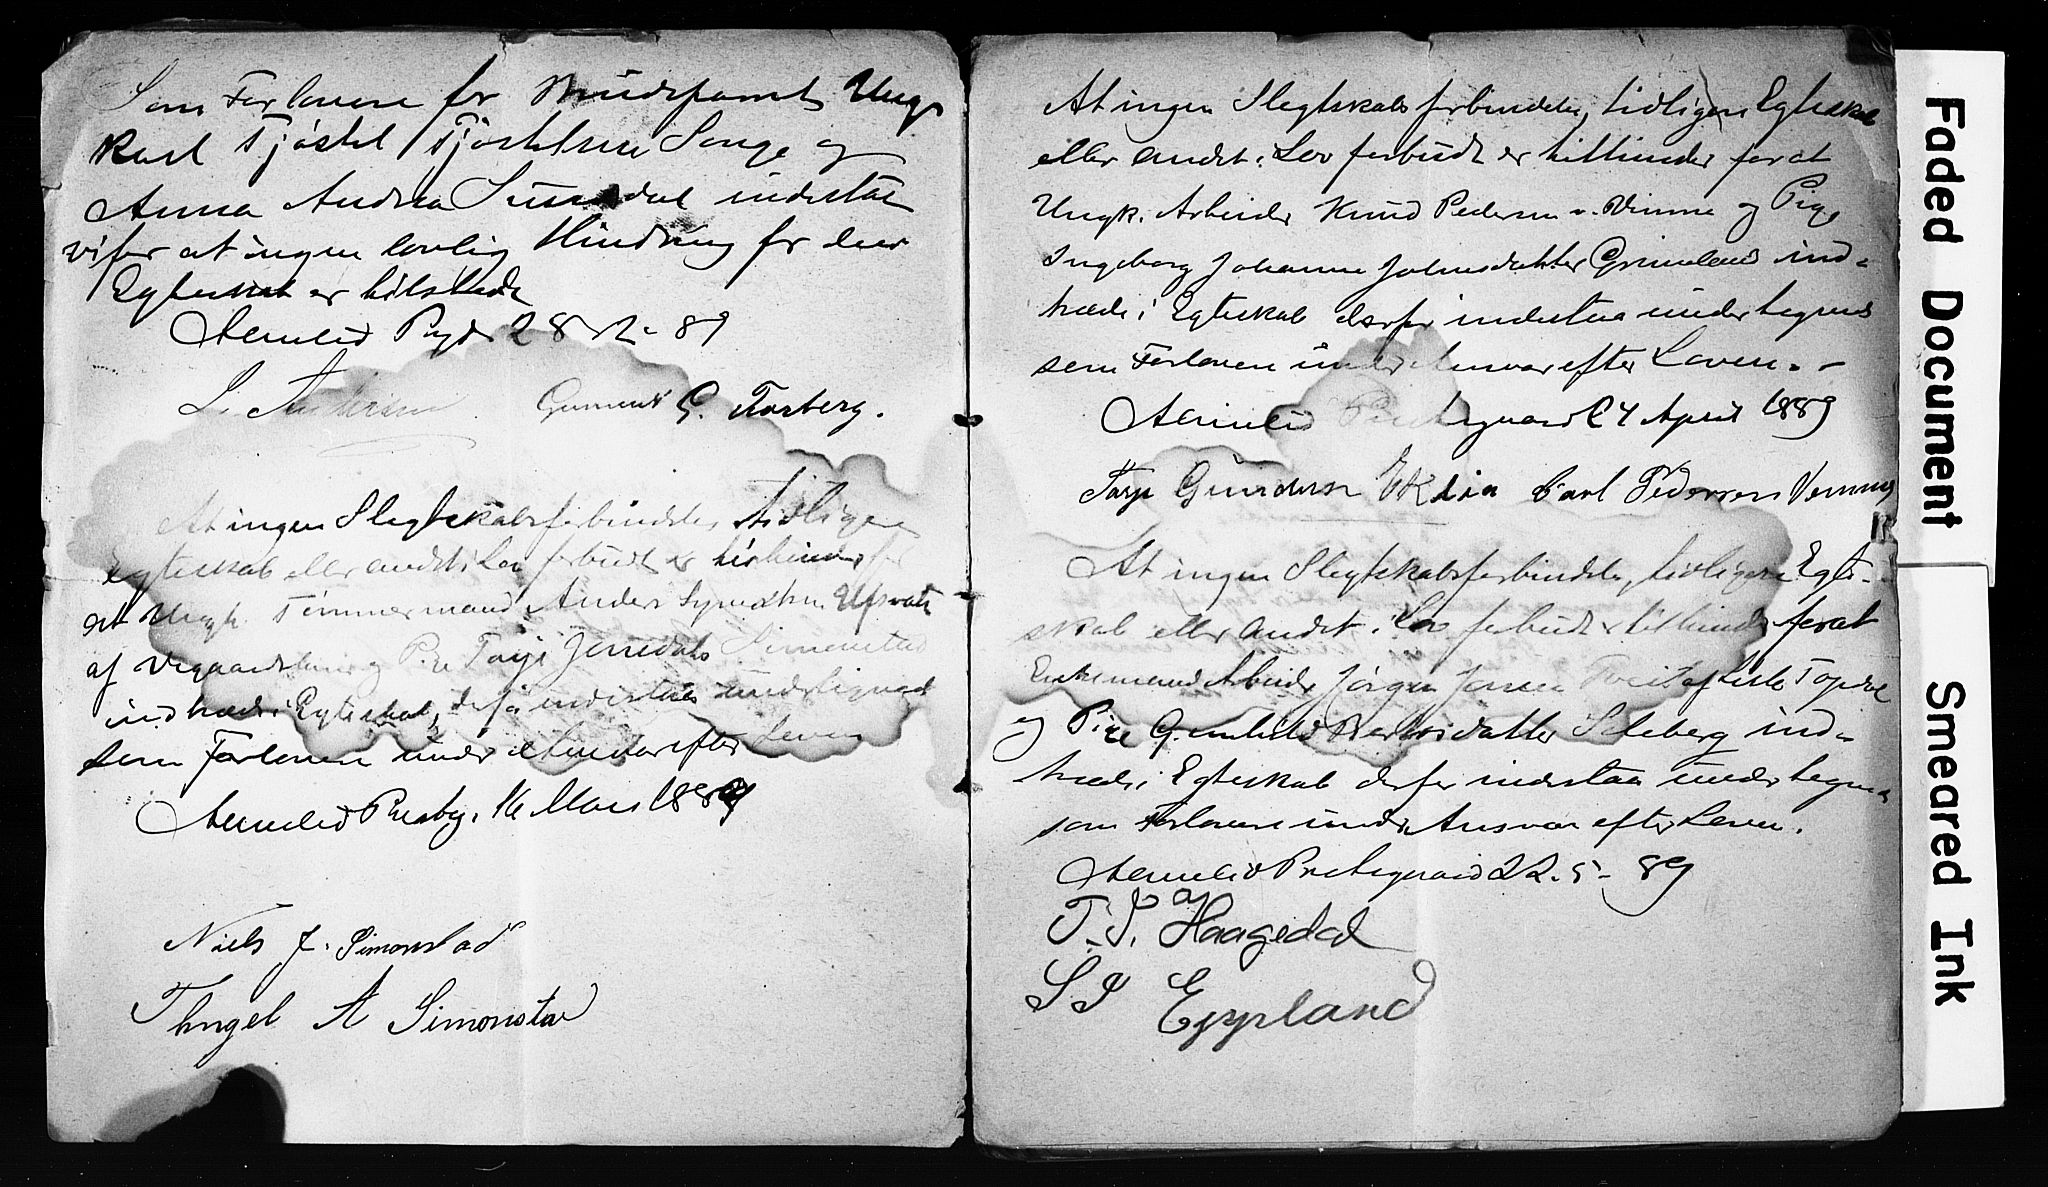 Som Forlovere for Brudeparret Ung-
karl Tjøstel Tjøstelsen Songe og
Anna Andrea Simesdal indestaa
vi for at ingen lovlig Hindring for deres
Egteskab er tilstede
Aamlid Prgd 28 12-89
L. Andersen Gunnuf G. Torsberg.
At ingen Slegtskabsforbindelse, tidligere
Egteskab eller andet i Lov forbudt er til hinder for
at Ungk. Tømmermand Anders Syvertsen Ufsvatn
af Vegaardsheien og Pige Torje Jensdatr Simonstad
indtræde i Egteskab, derfor indestaa undertegnede
som Forlovere under Ansvar efter Loven
Aamlid Prestg. 16 Mars 1889
Niels J. Simonstad
Thngel A Simonstad
At ingen Slegtskabsforbindelse, tidligere Egteskab
eller andet i Lov forbudt er til hinder for at
Ungk. Arbeider Knud Pedersen v. Vimme og Pige
Ingeborg Johanne Johnsdatter Grimeland ind-
træde i Egteskab derfor indestaa undertegnede
som Forlovere under Ansvar efter Loven. -
Aamlid Prestegaard 24 April 1889
Torje Gundersen Eklia Carl Pedersen Vemme
At ingen Slegtskabsforbindelse, tidligere Egte-
skab eller andet i Lov forbudt er til hinder for at
Enkemand Arbeider Jørgen Jensen Tveit af Liste Topdal
og Pige Gunhild Berthesdatter Seleberg ind-
træde i Egteskab derfor indestaa undertegnede
som Forlovere under Ansvar efter Loven.
Aamlid Prestegaard 22-5-89
T. J. Haagedal
S S Eppland
Faded Document
Smeared Ink